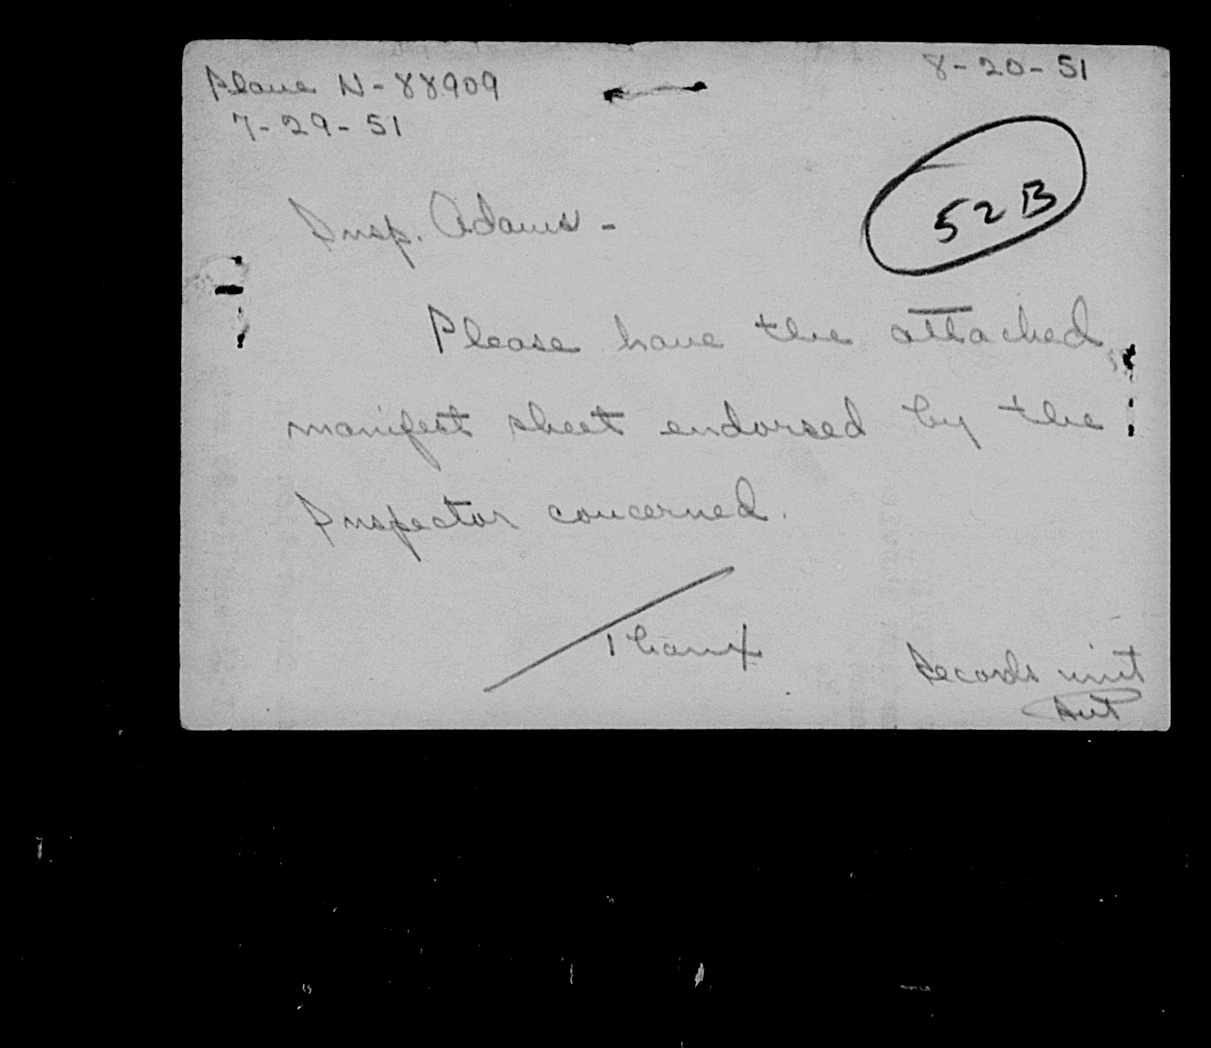 Plane N-88909
8-20-51
7-29-51
52B
Insp. Adams -
Please have the attached
manifest sheet endorsed by the
Inspector concerned.
Thanx
Records unit